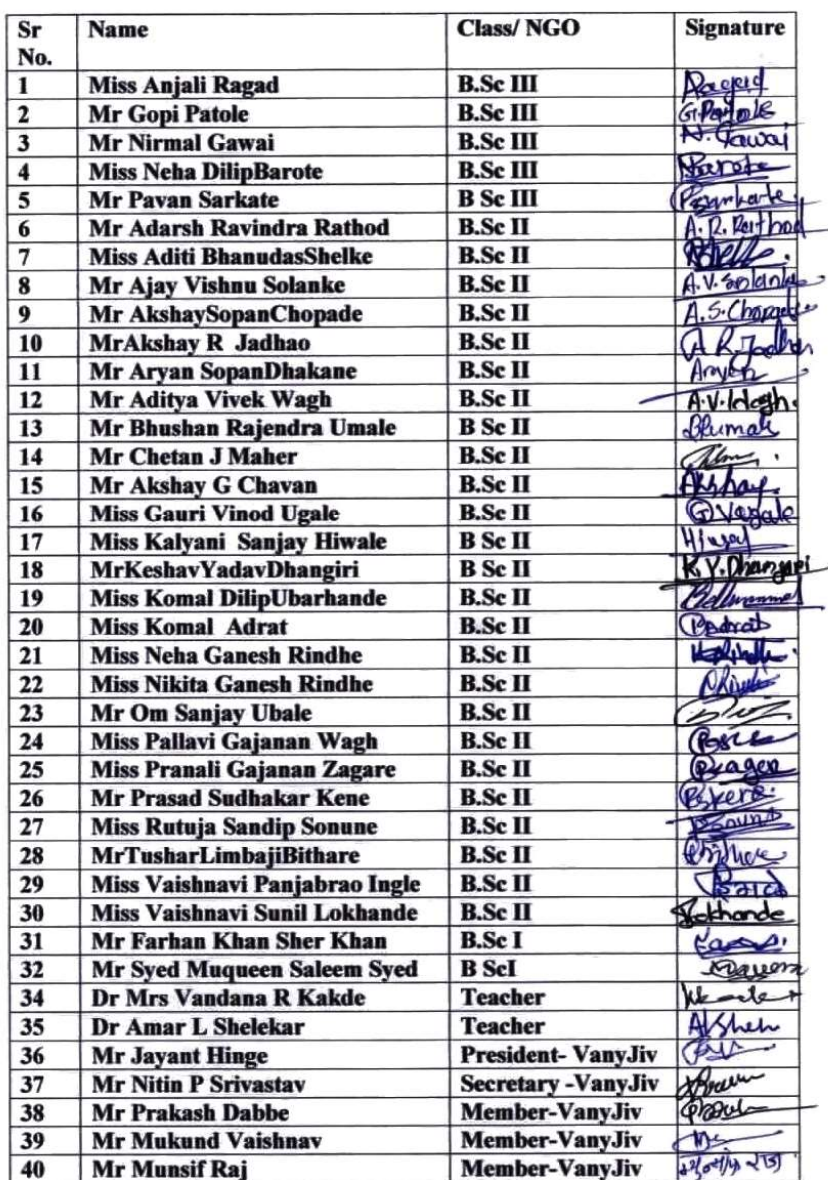 Sr No. Name Class/ NGO Signature
1 Miss Anjali Ragad B.Sc III
2 Mr Gopi Patole B.Sc III G.Patole
3 Mr Nirmal Gawai B.Sc III N. Gawai
4 Miss Neha DilipBarote B.Sc III
5 Mr Pavan Sarkate B Sc III
6 Mr Adarsh Ravindra Rathod B.Sc II A. R. Rathod
7 Miss Aditi BhanudasShelke B.Sc II
8 Mr Ajay Vishnu Solanke B.Sc II A.V. Solanke
9 Mr AkshaySopanChopade B.Sc II
10 MrAkshay R Jadhao B.Sc II
11 Mr Aryan SopanDhakane B.Sc II Aryan
12 Mr Aditya Vivek Wagh B.Sc II A.V. Wagh.
13 Mr Bhushan Rajendra Umale B Sc II
14 Mr Chetan J Maher B.Sc II
15 Mr Akshay G Chavan B.Sc II Akshay.
16 Miss Gauri Vinod Ugale B.Sc II
17 Miss Kalyani Sanjay Hiwale B Sc II
18 MrKeshavYadavDhangiri B Sc II
19 Miss Komal DilipUbarhande B.Sc II
20 Miss Komal Adrat B.Sc II
21 Miss Neha Ganesh Rindhe B.Sc II
22 Miss Nikita Ganesh Rindhe B.Sc II
23 Mr Om Sanjay Ubale B.Sc II
24 Miss Pallavi Gajanan Wagh B.Sc II
25 Miss Pranali Gajanan Zagare B.Sc II
26 Mr Prasad Sudhakar Kene B.Sc II
27 Miss Rutuja Sandip Sonune B.Sc II
28 MrTusharLimbajiBithare B.Sc II
29 Miss Vaishnavi Panjabrao Ingle B.Sc II
30 Miss Vaishnavi Sunil Lokhande B.Sc II Lokhande
31 Mr Farhan Khan Sher Khan B.Sc I
32 Mr Syed Muqueen Saleem Syed B ScI
34 Dr Mrs Vandana R Kakde Teacher
35 Dr Amar L Shelekar Teacher
36 Mr Jayant Hinge President- VanyJiv
37 Mr Nitin P Srivastav Secretary -VanyJiv
38 Mr Prakash Dabbe Member-VanyJiv
39 Mr Mukund Vaishnav Member-VanyJiv
40 Mr Munsif Raj Member-VanyJiv